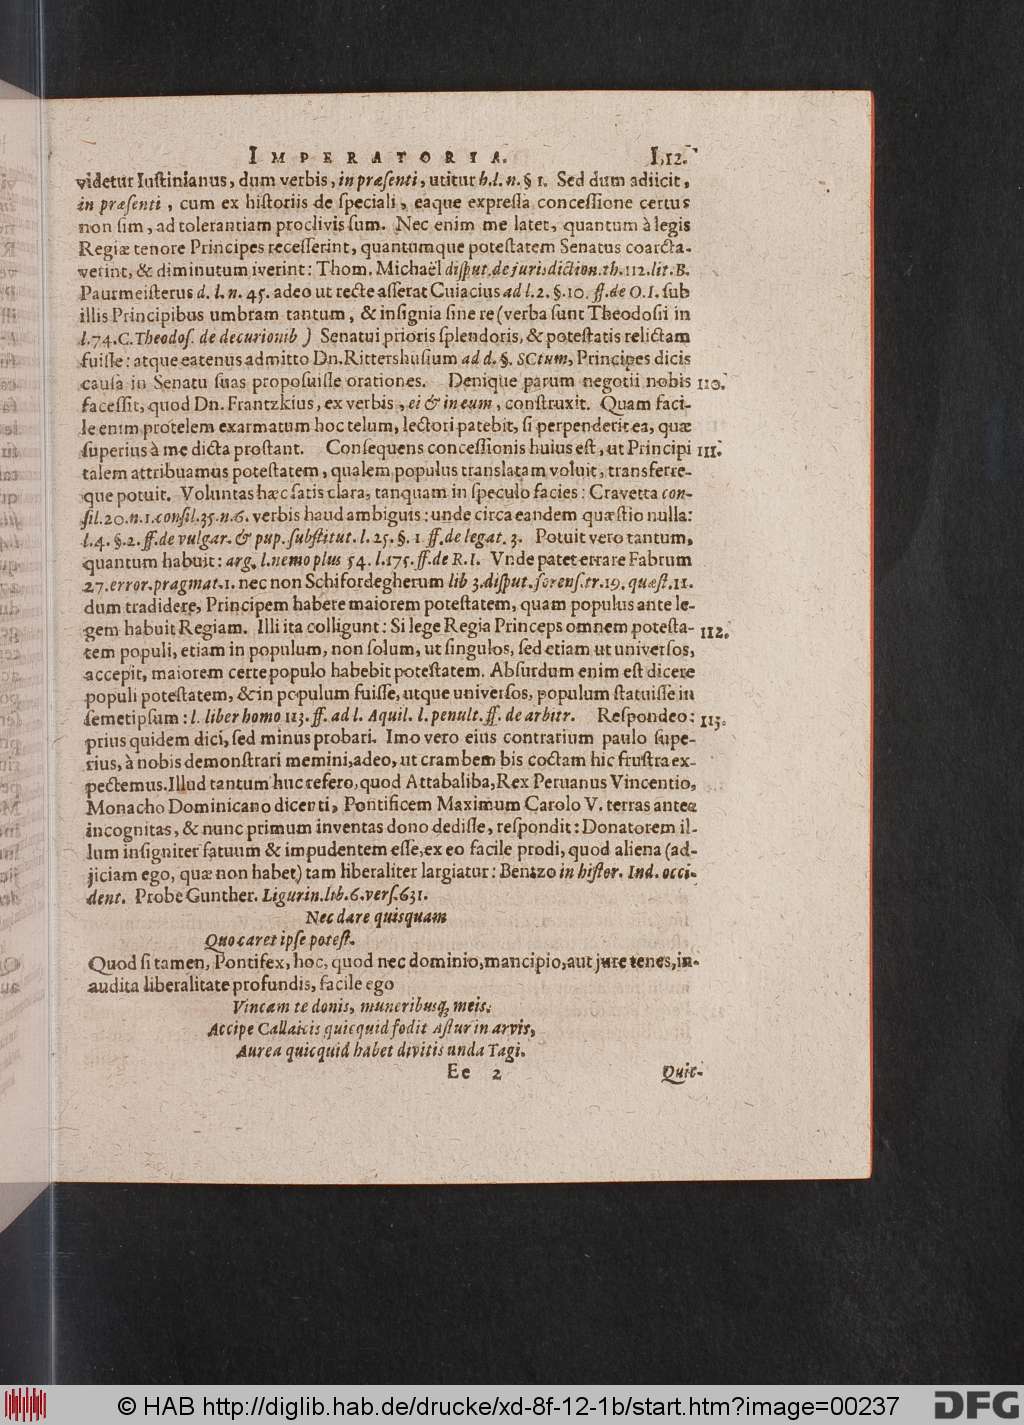 IMPERATORIA. I,12.
videtur Iustinianus, dum verbis, in præsenti, utitur h.l. n. § 1. Sed dum adiicit,
in præsenti, cum ex historiis de speciali, eaque expressa concessione certus
non sim, ad tolerantiam proclivis sum. Nec enim me latet, quantum à legis
Regiæ tenore Principes recesserint, quantumque potestatem Senatus coarcta-
verint, & diminutum iverint: Thom. Michaël disput. de jurisdiction. th. 112. lit. B.
Paurmeisterus d. l. n. 45. adeo ut recte asserat Cuiacius ad l. 2. §. 10. ff. de O. I. sub
illis Principibus umbram tantum, & insignia sine re (verba sunt Theodosii in
l. 74. C. Theodos. de decurionib) Senatui prioris splendoris, & potestatis relictam
fuisse: atque eatenus admitto Dn. Rittershusium ad d. §. SCtum, Principes dicis
causa in Senatu suas proposuisse orationes. Denique parum negotii nobis 110.
facessit, quod Dn. Frantzkius, ex verbis, ei & in eum, construxit. Quam faci-
le enim protelem exarmatum hoc telum, lectori patebit, si perpenderit ea, quæ
superius à me dicta prostant. Consequens concessionis huius est, ut Principi 111.
talem attribuamus potestatem, qualem populus translatam voluit, transferre-
que potuit. Voluntas hæc satis clara, tanquam in speculo facies: Cravetta con-
sil. 20. n. 1. consil. 35. n. 6. verbis haud ambiguis: unde circa eandem quæstio nulla:
l. 4. §. 2. ff. de vulgar. & pup. substitut. l. 25. §. 1. ff. de legat. 3. Potuit vero tantum,
quantum habuit: arg. l. nemo plus 54. l. 175. ff. de R. I. Vnde patet errare Fabrum
27. error. pragmat. 1. nec non Schifordegherum lib 3. disput. forens. tr. 19. quæst. 11.
dum tradidere, Principem habere maiorem potestatem, quam populus ante le-
gem habuit Regiam. Illi ita colligunt: Si lege Regia Princeps omnem potesta- 112.
tem populi, etiam in populum, non solum, ut singulos, sed etiam ut universos,
accepit, maiorem certe populo habebit potestatem. Absurdum enim est dicere
populi potestatem, & in populum fuisse, utque universos, populum statuisse in
semetipsum: l. liber homo 113. ff. ad l. Aquil. l. penult. ff. de arbitr. Respondeo: 113.
prius quidem dici, sed minus probari. Imo vero eius contrarium paulo supe-
rius, à nobis demonstrari memini, adeo, ut crambem bis coctam hic frustra ex-
pectemus. Illud tantum huc refero, quod Attabaliba, Rex Peruanus Vincentio,
Monacho Dominicano dicenti, Pontificem Maximum Carolo V. terras antea
incognitas, & nunc primum inventas dono dedisse, respondit: Donatorem il-
lum insigniter fatuum & impudentem esse, ex eo facile prodi, quod aliena (ad-
jiciam ego, quæ non habet) tam liberaliter largiatur: Benzo in histor. Ind. occi-
dent. Probe Gunther. Ligurin. lib. 6. vers. 631.
Nec dare quisquam
Quo caret ipse potest.
Quod si tamen, Pontifex, hoc, quod nec dominio, mancipio, aut jure tenes, in-
audita liberalitate profundis, facile ego
Vincam te donis, muneribusq; meis.
Accipe Callaicis quicquid fodit Astur in arvis,
Aurea quicquid habet divitis unda Tagi.
Ee 2 Quic-
© HAB http://diglib.hab.de/drucke/xd-8f-12-1b/start.htm?image=00237 DFG